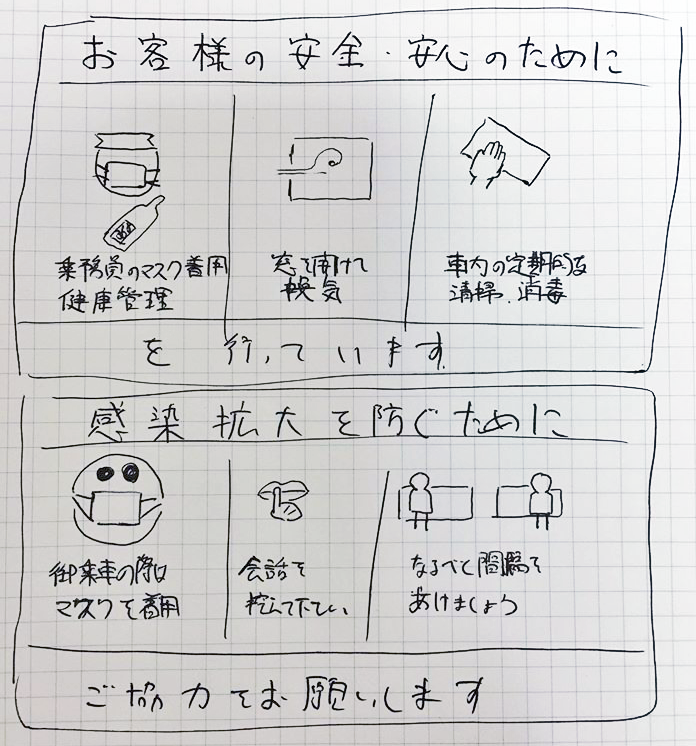 お客様の安全・安心のために
乗務員のマスク着用
健康管理
窓を開けて
換気
車内の定期的な
清掃、消毒
を行っています
感染拡大を防ぐために
御乗車の際は
マスクを着用
会話を
控えて下さい
なるべく間隔を
あけましょう
ご協力をお願いします